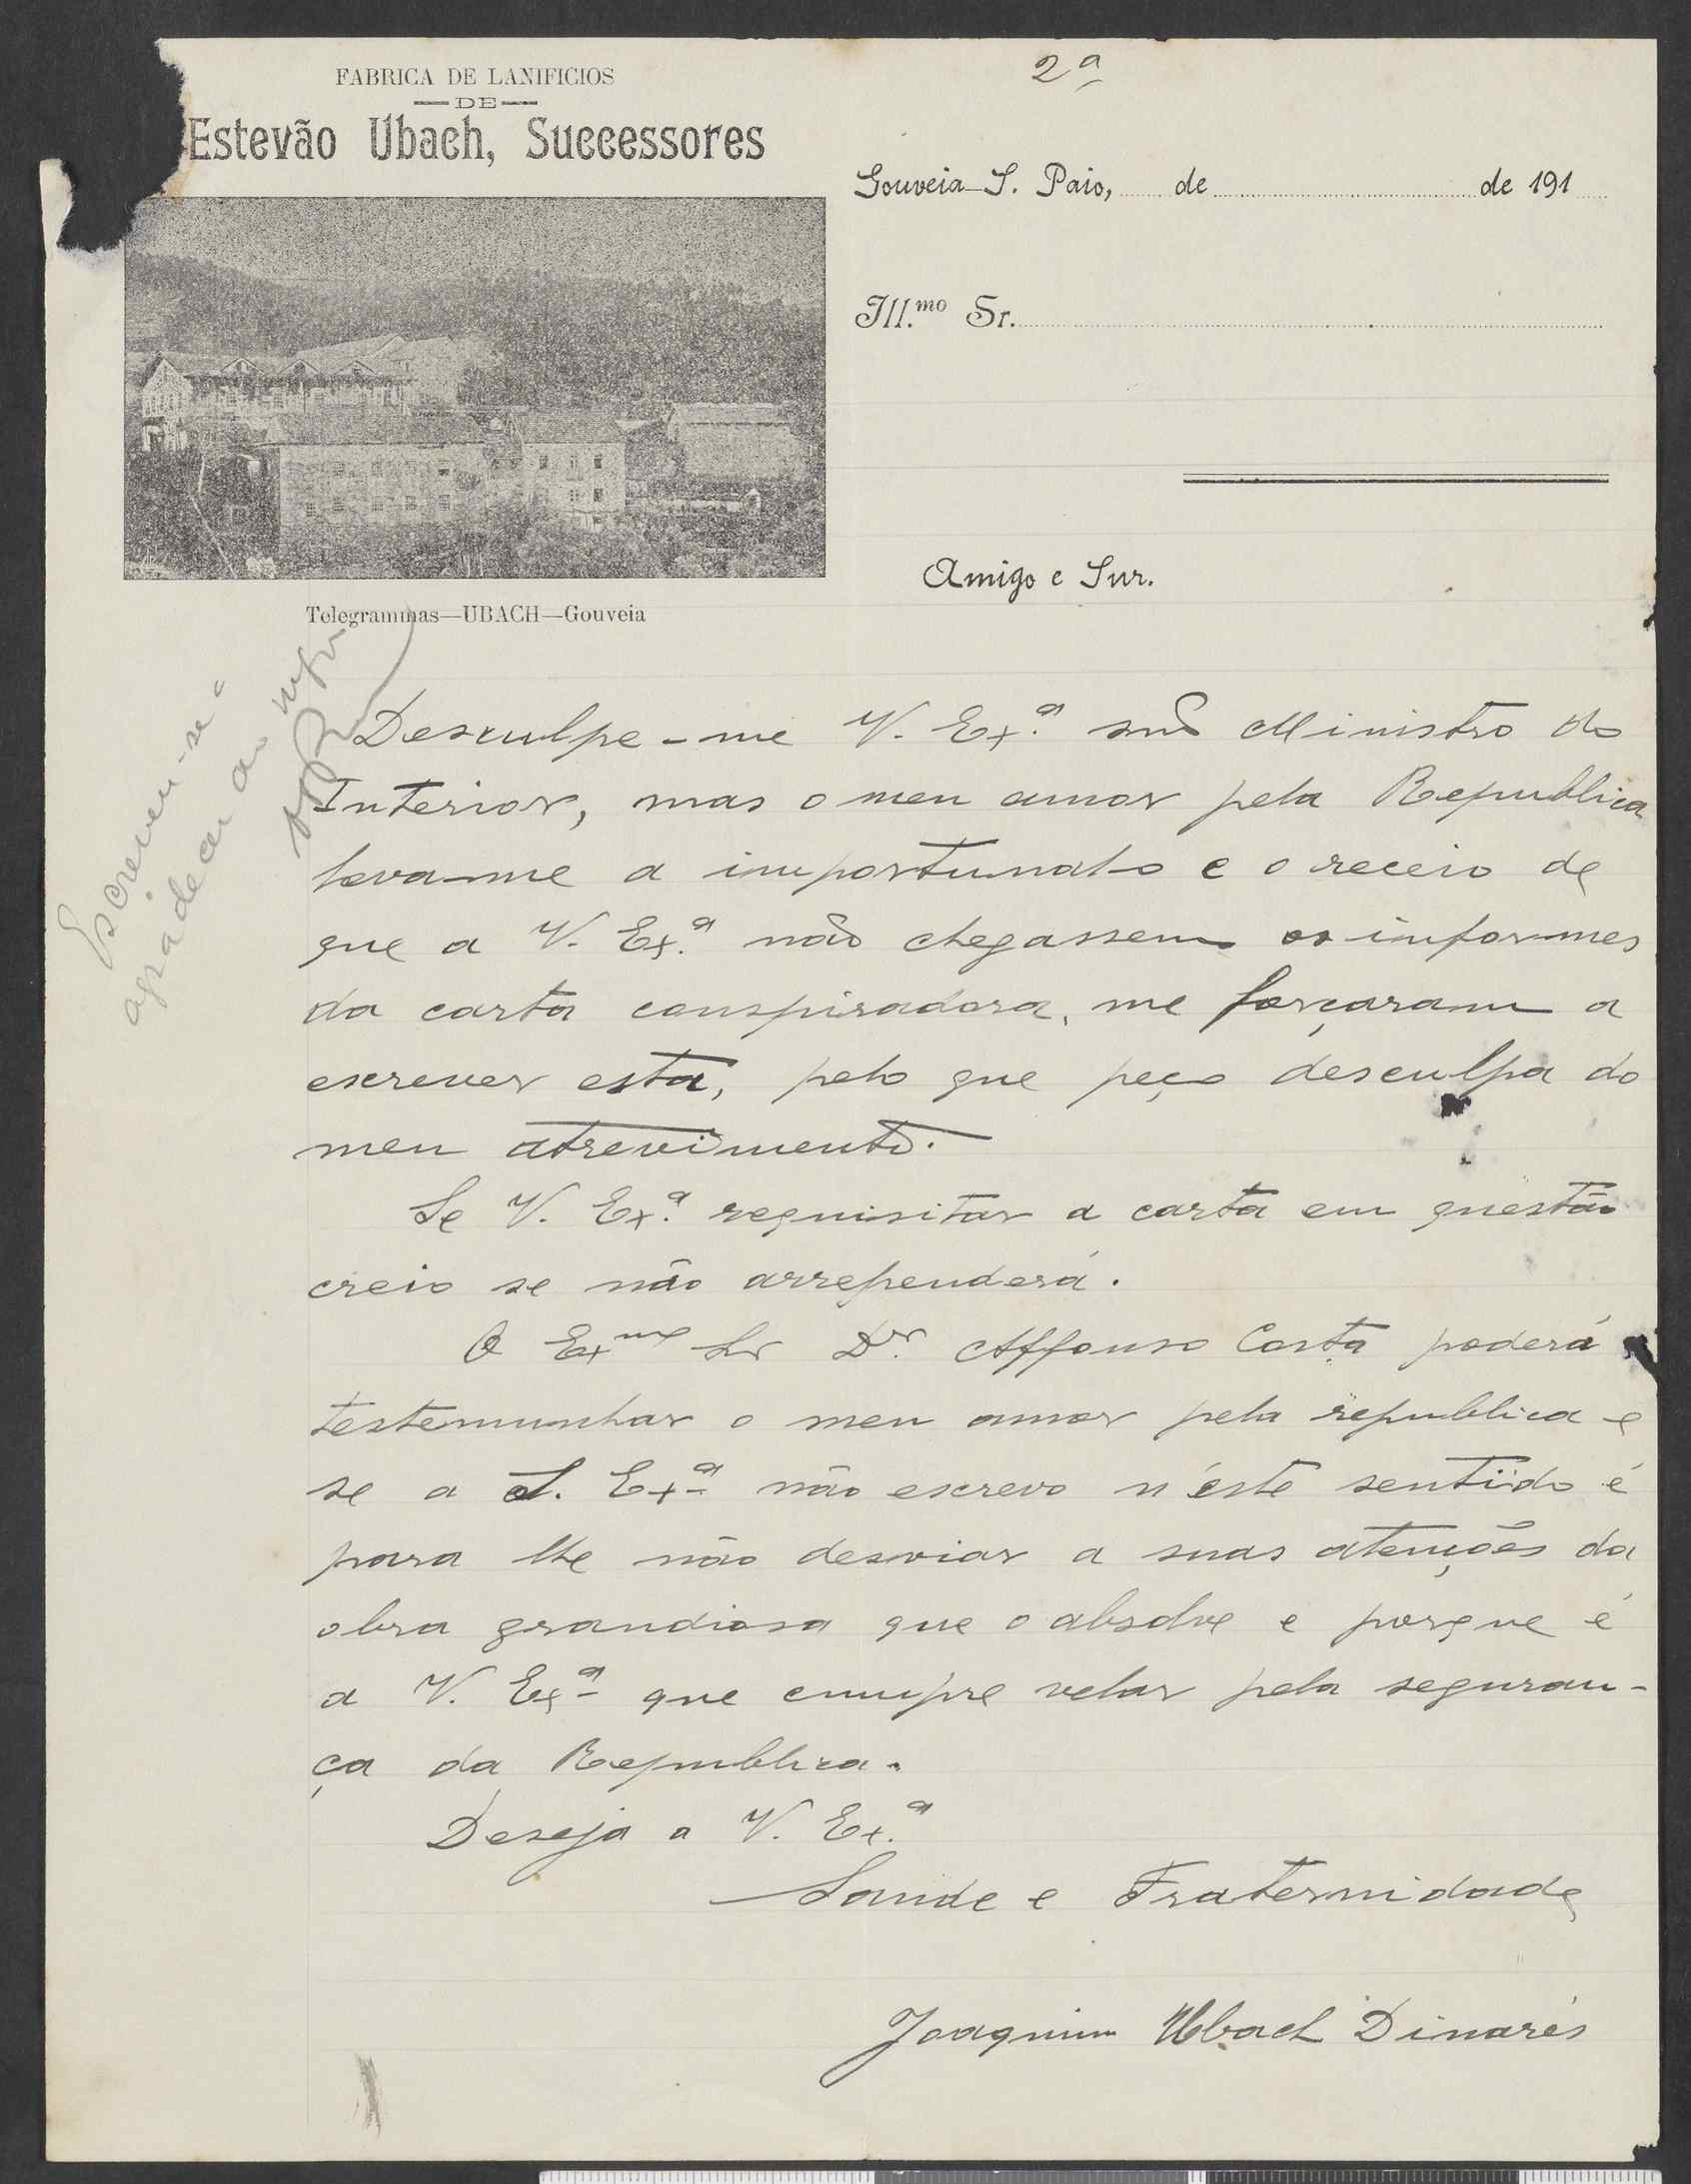 2ª
FABRICA DE LANIFICIOS
DE
Estevão Ubach, Successores
Gouveia-S. Paio, de de 191
Ill.mo Sr.
Amigo e Snr.
Telegrammas—UBACH—Gouveia
Escreveu-se
agradecer ao
Desculpe-me V. Ex.ª snr Ministro do
Interior, mas o meu amor pela Republica
leva-me a importunal-o e o receio de
que a V. Ex.ª não chegassem os informes
da carta conspiradora, me forçaram a
escrever esta, pelo que peço desculpa do
meu atrevimento.
Se V. Ex.ª requisitar a carta em questão
creio se não arrependerá.
O Exmo Sr Dr. Affonso Costa poderá
testemunhar o meu amor pela republica e
se a S. Exª não escrevo n'este sentido é
para lhe não desviar a suas atenções da
obra grandiosa que o absolve e porque é
a V. Exª que cumpre velar pela seguran-
ça da Republica.
Deseja a V. Ex.ª
Saude e Fraternidade
Joaquim Ubach Dinarés